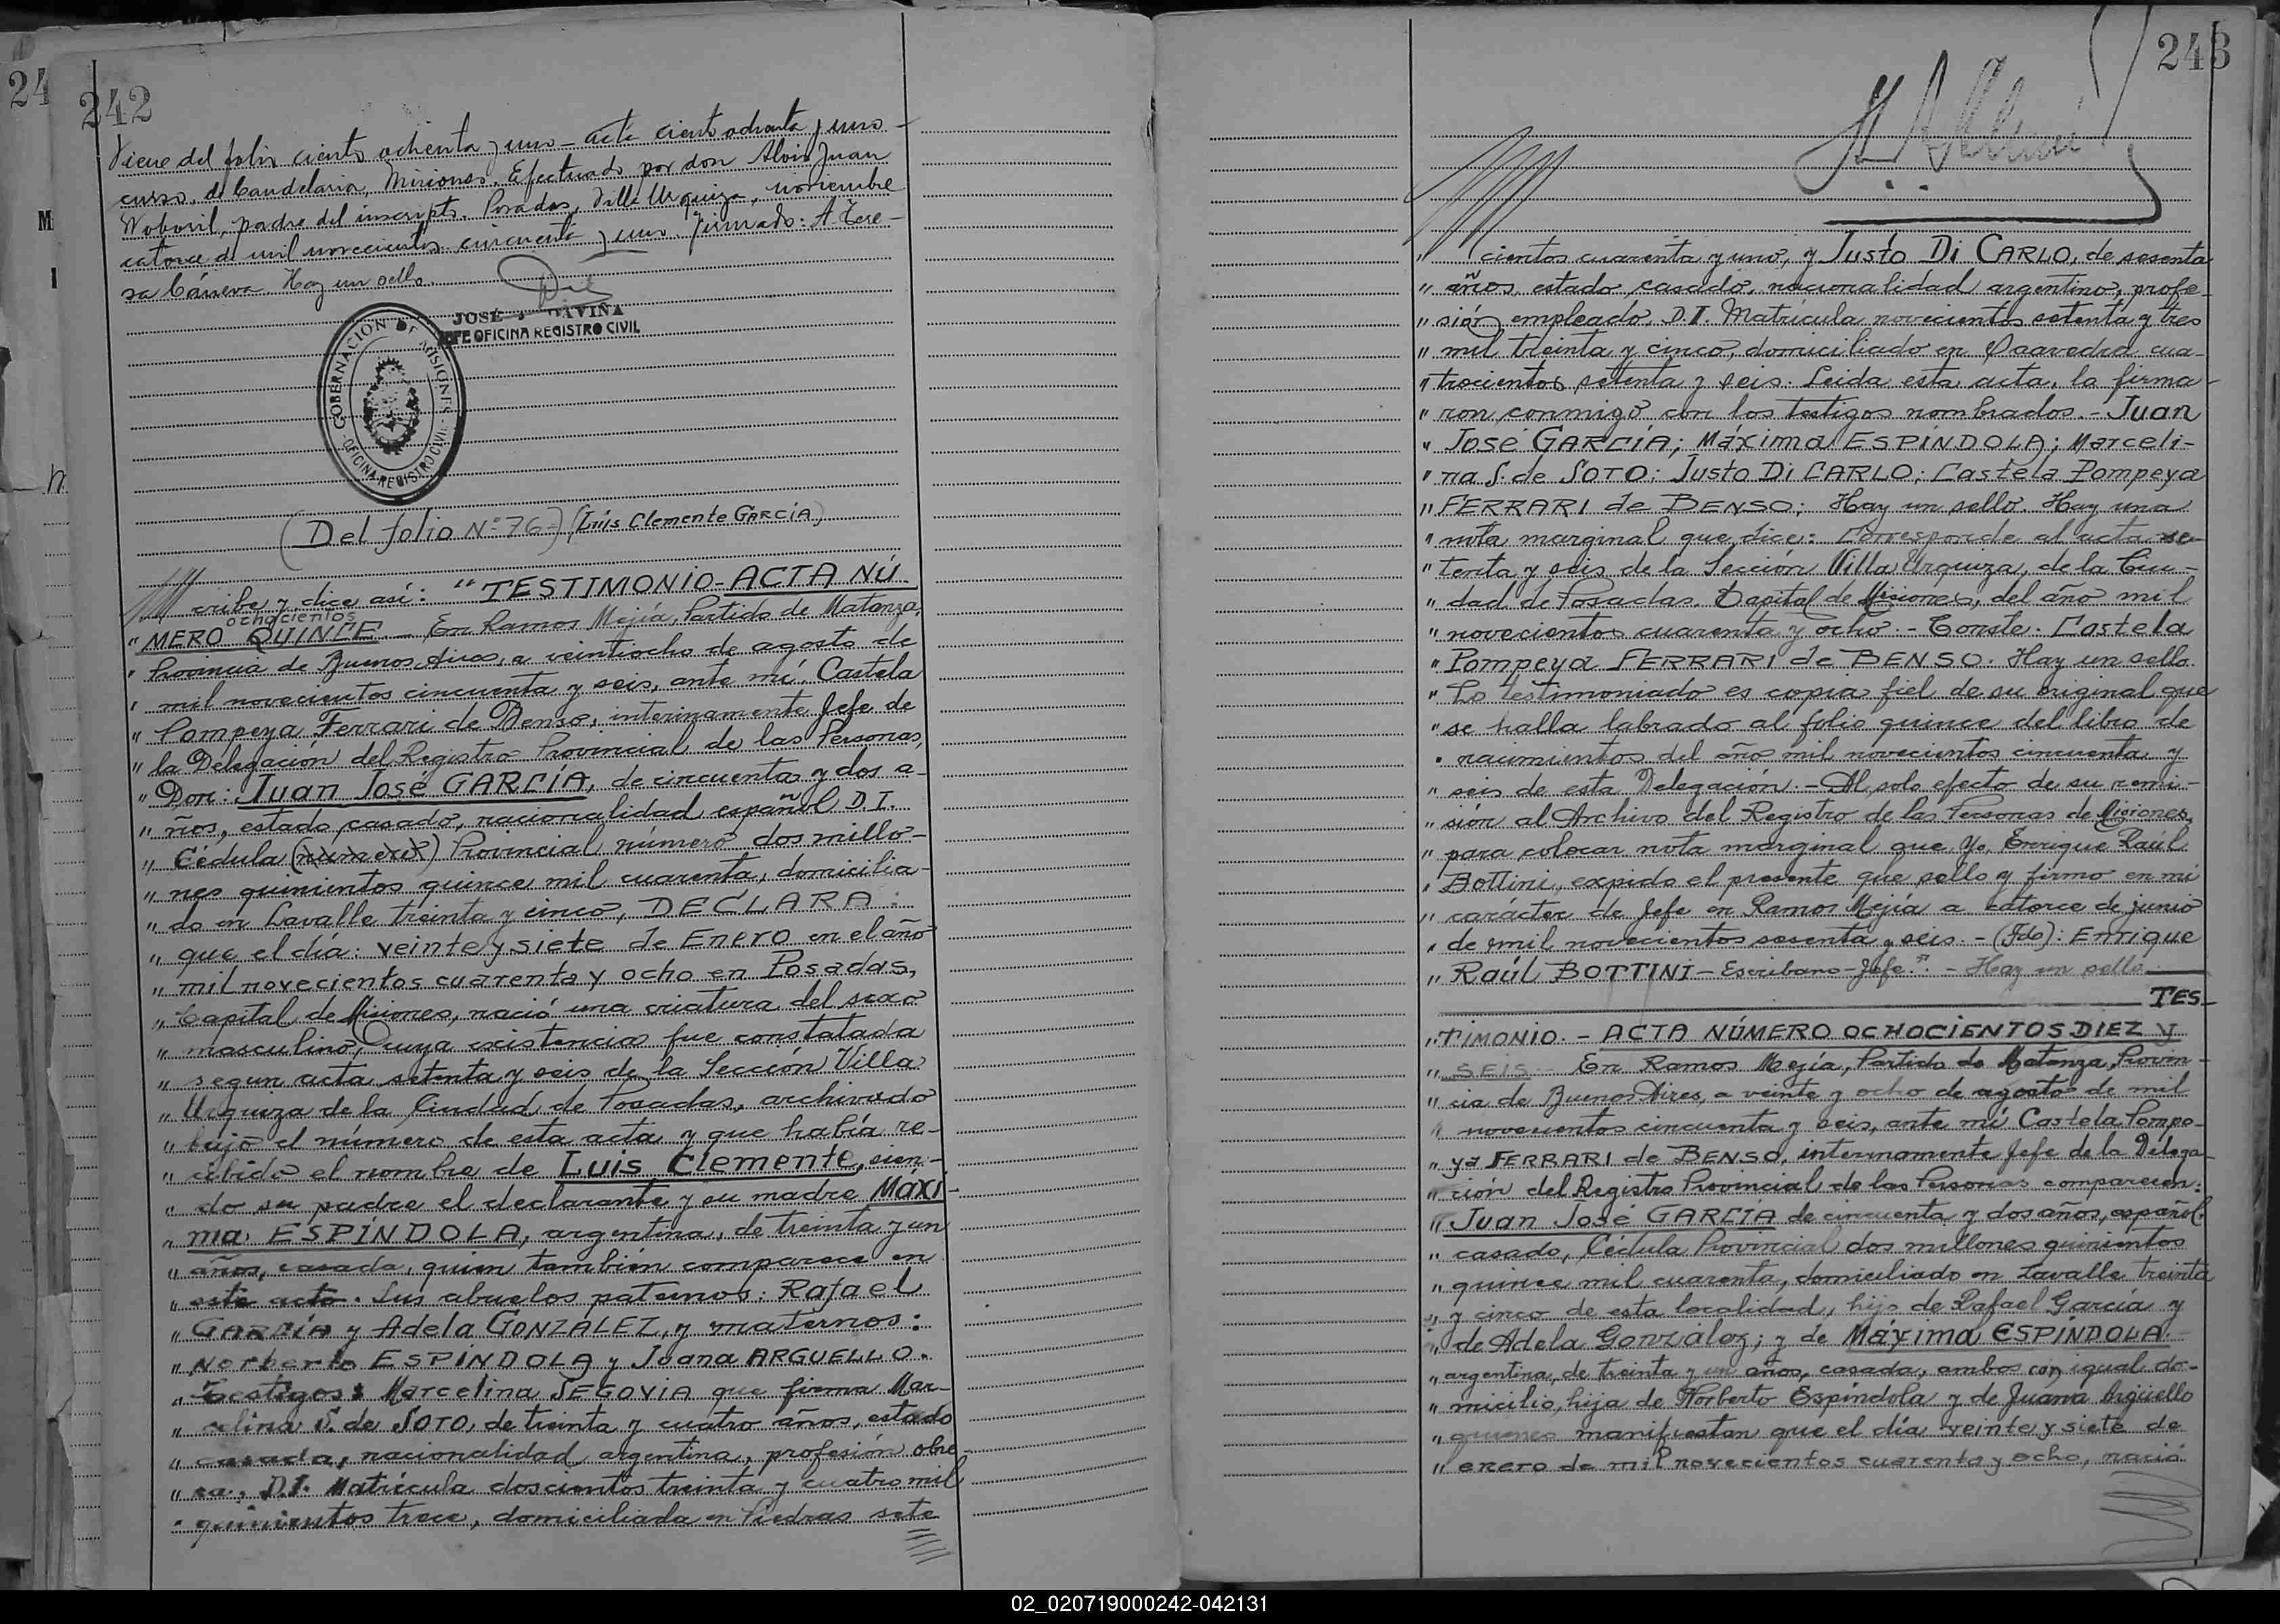 242
Viene del folio ciento ochenta y uno - acta ciento ochenta y uno -
curso, de Candelaria, Misiones. Efectuado por don Alois Juan
Woboril, padre del inscripto. Posadas, Villa Urquiza, noviembre
catorce de mil novecientos cincuenta y uno. Firmado: A. Tere-
sa Cáneva. Hay un sello.
JOSÉ DAVIÑA
JEFE OFICINA REGISTRO CIVIL
GOBERNACIÓN DE MISIONES
OFICINA REGISTRO CIVIL
(Del folio Nº 76-) (Luis Clemente GARCÍA)
cribe y dice así: "TESTIMONIO-ACTA NÚ-
ochocientos
" MERO QUINCE. - En Ramos Mejía, Partido de Matanza,
" Provincia de Buenos Aires, a veintiocho de agosto de
" mil novecientos cincuenta y seis, ante mí, Castela
" Pompeya Ferrari de Benso, interinamente Jefe de
" la Delegación del Registro Provincial de las Personas,
" Don: Juan José GARCÍA, de cincuenta y dos a-
" ños, estado casado, nacionalidad español D.I.
" Cédula (número) Provincial número dos millo-
" nes quinientos quince mil cuarenta, domicilia-
" do en Lavalle treinta y cinco, DECLARA:
" que el día: veinte y siete de Enero en el año
" mil novecientos cuarenta y ocho en Posadas,
" Capital de Misiones, nació una criatura del sexo
" masculino, cuya existencia fue constatada
" segun acta setenta y seis de la Sección Villa
" Urquiza de la Ciudad de Posadas, archivado
" bajo el número de esta acta y que había re-
" cibido el nombre de Luis Clemente, sien-
" do su padre el declarante y su madre Máxi-
" ma ESPÍNDOLA, argentina, de treinta y un
" años, casada, quien también comparece en
" este acto. Sus abuelos paternos: Rafael
" GARCÍA y Adela GONZALEZ, y maternos:
" Norberto ESPÍNDOLA y Juana ARGUELLO.
" Testigos: Marcelina SEGOVIA que firma Mar-
" celina S. de SOTO, de treinta y cuatro años, estado
" casada, nacionalidad argentina, profesión obre-
" ra, D.I. Matrícula doscientos treinta y cuatro mil
" quinientos trece, domiciliada en Piedras sete
243
" cientos cuarenta y uno, y Justo Di CARLO, de sesenta
" años, estado casado, nacionalidad argentino, profe-
" sión empleado, D.I. Matrícula novecientos setenta y tres
" mil treinta y cinco, domiciliado en Saavedra cua-
" trocientos setenta y seis. Leida esta acta, la firma-
" ron conmigo con los testigos nombrados. - Juan
" José GARCÍA; Máxima ESPÍNDOLA; Marceli-
" na S. de SOTO; Justo Di CARLO; Castela Pompeya
" FERRARI de BENSO; Hay un sello. Hay una
" nota marginal que dice: Corresponde al acta se-
" tenta y seis de la Sección Villa Urquiza, de la Ciu-
" dad de Posadas. Capital de Misiones, del año mil
" novecientos cuarenta y ocho. - Conste. Castela
" Pompeya FERRARI de BENSO. Hay un sello.
" Lo testimoniado es copia fiel de su original que
" se halla labrado al folio quince del libro de
" nacimientos del año mil novecientos cincuenta y
" seis de esta Delegación. - Al solo efecto de su remi-
" sión al Archivo del Registro de las Personas de Misiones,
" para colocar nota marginal que, Yo, Enrique Raúl
" Bottini, expido el presente que sello y firmo en mi
" carácter de Jefe en Ramos Mejía a catorce de junio
" de mil novecientos sesenta y seis. - (Fdo): Enrique
" Raúl BOTTINI - Escribano - Jefe". - Hay un sello.
TES-
" TIMONIO. - ACTA NÚMERO OCHOCIENTOS DIEZ Y
" SEIS - En Ramos Mejía, Partido de Matanza, Provin-
" cia de Buenos Aires, a veinte y ocho de agosto de mil
" novecientos cincuenta y seis, ante mí Castela Pompe-
" ya FERRARI de BENSO, interinamente Jefe de la Delega-
" ción del Registro Provincial de las Personas comparecen:
" Juan José GARCÍA de cincuenta y dos años, español,
" casado, Cédula Provincial dos millones quinientos
" quince mil cuarenta, domiciliado en Lavalle treinta
" y cinco de esta localidad, hijo de Rafael García y
" de Adela González; y de Máxima ESPÍNDOLA.-
" argentina, de treinta y un años, casada, ambos con igual do-
" micilio, hija de Norberto Espíndola y de Juana Argüello
" quienes manifiestan que el día veinte y siete de
" enero de mil novecientos cuarenta y ocho, nació
02_020719000242-042131